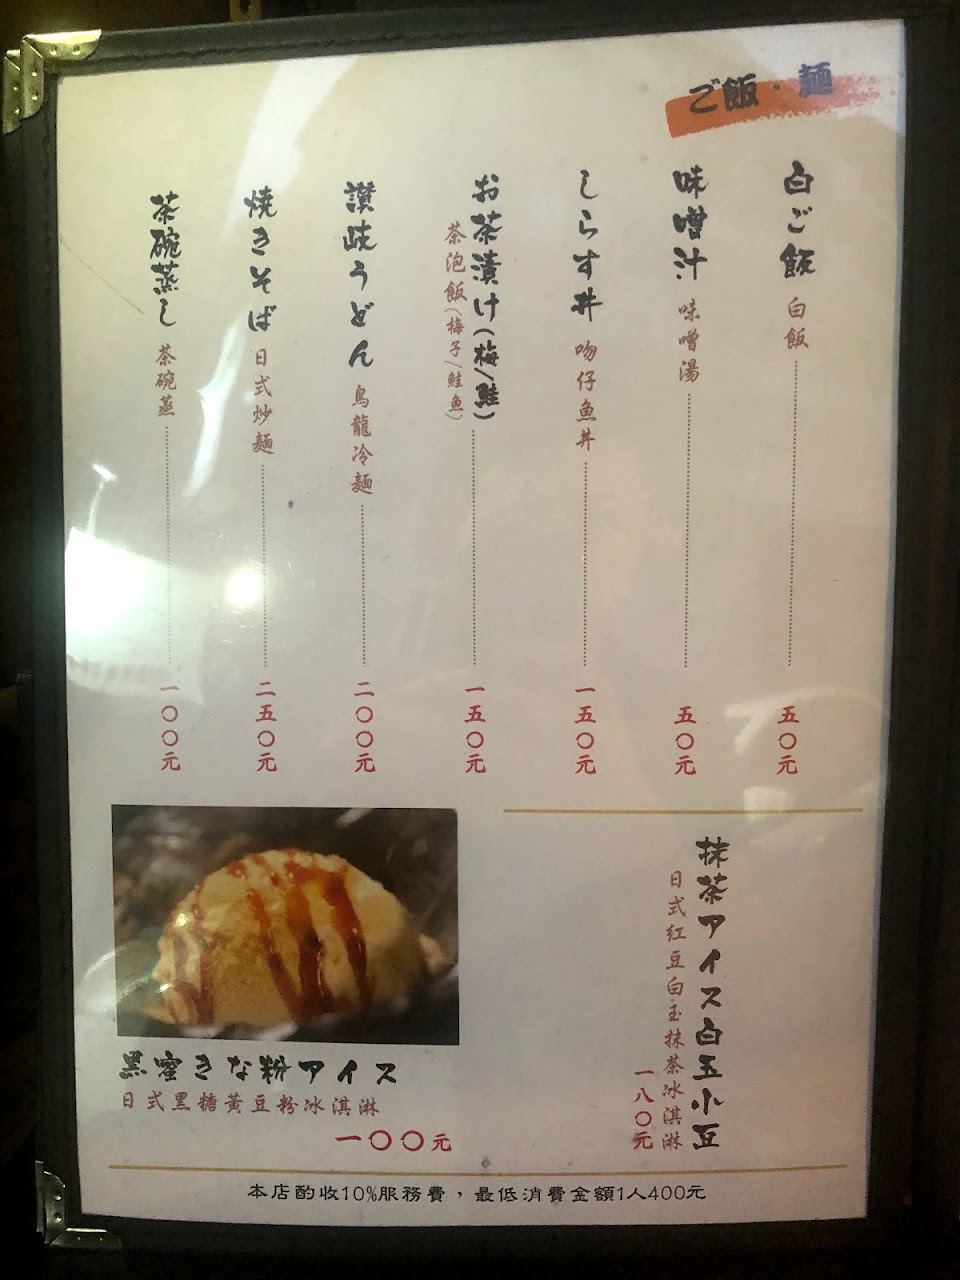 ご飯・麺
白ご飯 白飯 五〇元
味噌汁 味噌湯 五〇元
しらす丼 吻仔魚丼 一五〇元
お茶漬け(梅/鮭)
茶泡飯(梅子/鮭魚)
一五〇元
讃岐うどん 烏龍冷麵 二〇〇元
焼きそば 日式炒麵 二五〇元
茶碗蒸し 茶碗蒸 一〇〇元
抹茶アイス白玉小豆
日式紅豆白玉抹茶冰淇淋
一八〇元
黒蜜きな粉アイス
日式黑糖黃豆粉冰淇淋
一〇〇元
本店酌收10%服務費，最低消費金額1人400元